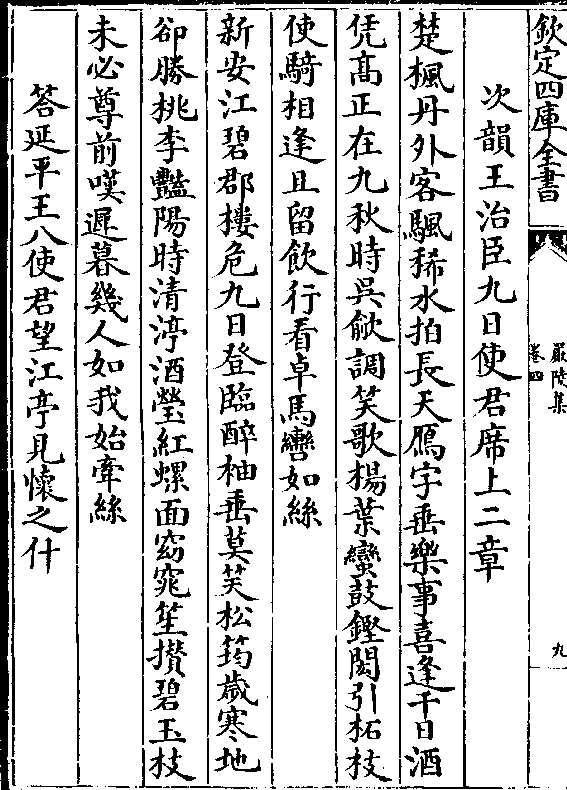 欽定四庫全書
嚴陵集
卷四
九
次韻王治臣九日使君席上二章
楚楓丹外客颿稀水拍長天鴈字垂樂事喜逢千日酒
凭髙正在九秋時吳歈調笑歌楊葉蠻鼓鏗閎引柘枝
使騎相逢且留飲行看卓馬轡如絲
新安江碧郡樓危九日登臨醉柚垂莫笑松筠歲寒地
卻勝桃李豔陽時清渟酒瑩紅螺面窈窕笙攅碧玉枝
未必尊前嘆遲暮幾人如我始牽絲
答延平王八使君望江亭見懷之什